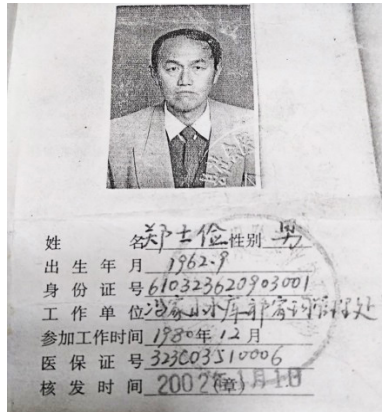 姓 名 郑士俭 性别 男
出生年月 1962.9
身份证号 610323620903001
工作单位 冯家山水库部窑河管理处
参加工作时间 1980年12月
医保证号 323C03510006
核发时间 2002年1月1日
(章)